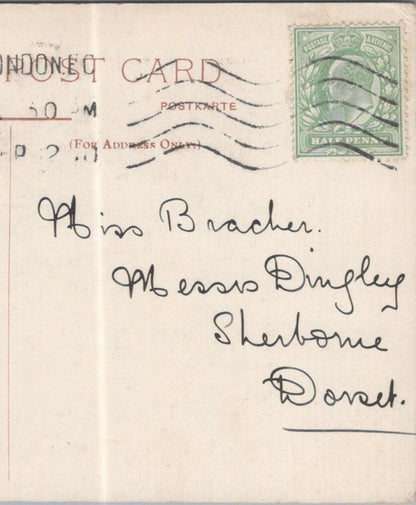 ONDON.E.C
POST CARD
POSTAGE & REVENUE
30 PM
POSTKARTE
HALF PENNY
(FOR ADDRESS ONLY.)
Miss Bracher.
Messrs Dingley
Sherborne
Dorset.